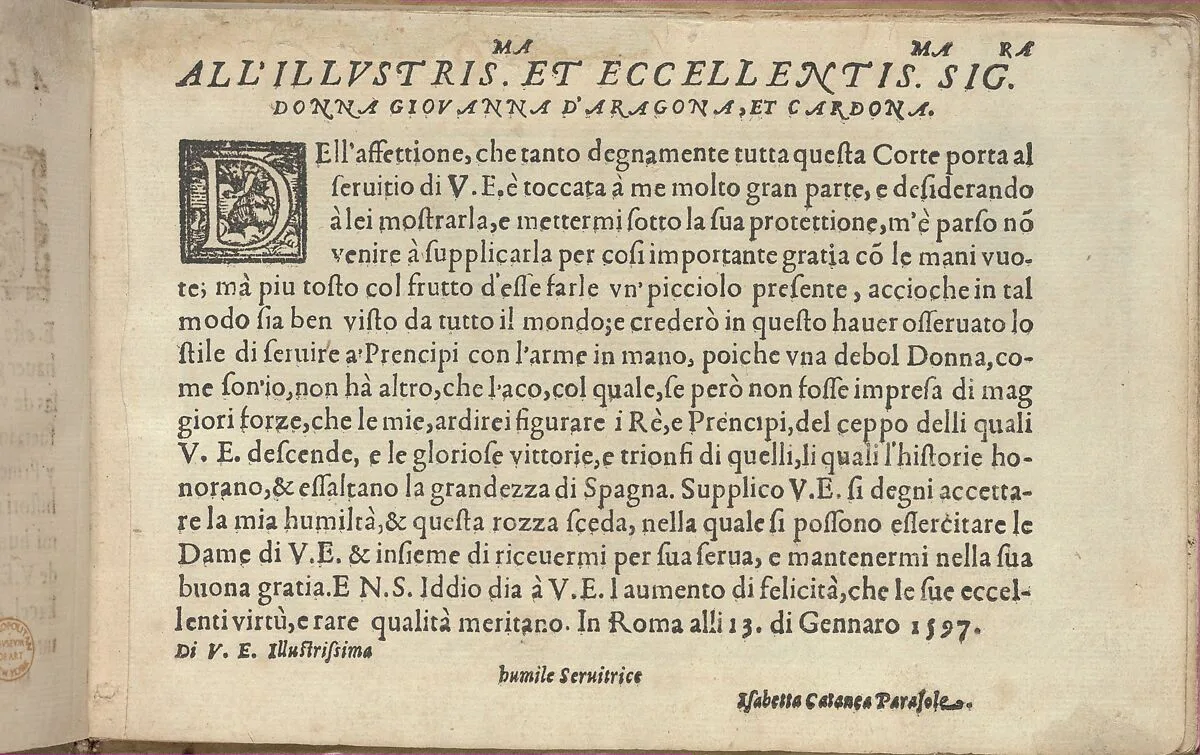 ALL'ILLVSTRIS.MA ET ECCELLENTIS.MA SIG.RA
DONNA GIOVANNA D'ARAGONA, ET CARDONA.
DEll'affettione, che tanto degnamente tutta questa Corte porta al
seruitio di V. E. è toccata à me molto gran parte, e desiderando
à lei mostrarla, e mettermi sotto la sua protettione, m'è parso nõ
venire à supplicarla per cosi importante gratia cõ le mani vuo-
te; mà piu tosto col frutto d'esse farle vn' picciolo presente, accioche in tal
modo sia ben visto da tutto il mondo; e crederò in questo hauer osseruato lo
stile di seruire a' Prencipi con l'arme in mano, poiche vna debol Donna, co-
me son'io, non hà altro, che l'aco, col quale, se però non fosse impresa di mag
giori forze, che le mie, ardirei figurare i Rè, e Prencipi, del ceppo delli quali
V. E. descende, e le gloriose vittorie, e trionfi di quelli, li quali l'historie ho-
norano, & essaltano la grandezza di Spagna. Supplico V. E. si degni accetta-
re la mia humiltà, & questa rozza sceda, nella quale si possono essercitare le
Dame di V. E. & insieme di riceuermi per sua serua, e mantenermi nella sua
buona gratia. E N. S. Iddio dia à V. E. l aumento di felicità, che le sue eccel-
lenti virtù, e rare qualità meritano. In Roma alli 13. di Gennaro 1597.
Di V. E. Illustrissima
humile Seruitrice
Isabetta Catanea Parasole.